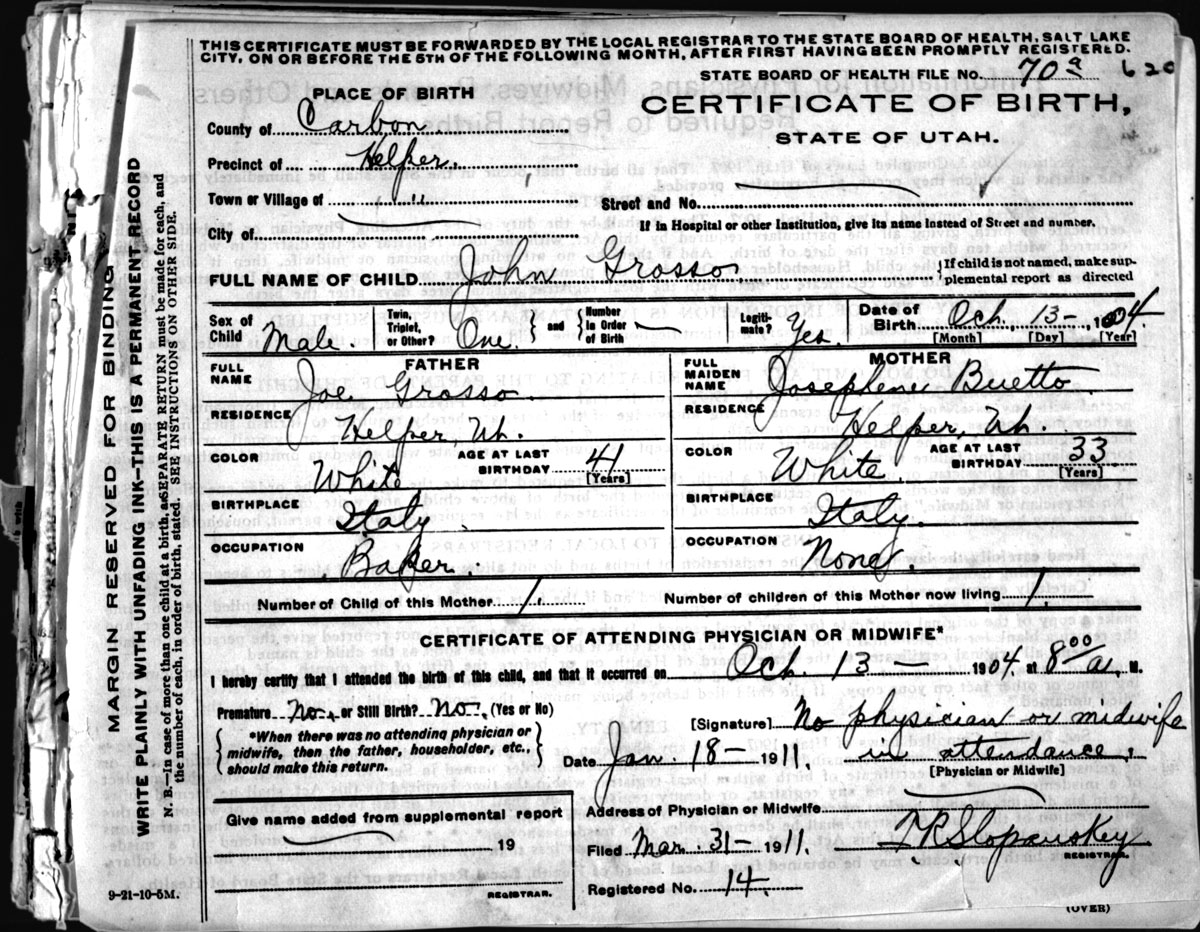 THIS CERTIFICATE MUST BE FORWARDED BY THE LOCAL REGISTRAR TO THE STATE BOARD OF HEALTH, SALT LAKE
CITY, ON OR BEFORE THE 5TH OF THE FOLLOWING MONTH, AFTER FIRST HAVING BEEN PROMPTLY REGISTERED.
STATE BOARD OF HEALTH FILE No. 70a 620
PLACE OF BIRTH
CERTIFICATE OF BIRTH,
STATE OF UTAH.
County of Carbon
Precinct of Helper.
Town or Village of " "
Street and No.
City of
If in Hospital or other Institution, give its name instead of Street and number.
FULL NAME OF CHILD John Grosso
If child is not named, make sup-
plemental report as directed
Sex of Child Male
Twin, Triplet, or Other? One.
and
Number in Order of Birth
Legiti-mate? Yes.
Date of Birth Oct. 13- 1904.
[Month] [Day] [Year]
FATHER
MOTHER
FULL NAME Joe Grosso.
FULL MAIDEN NAME Josephene Buetto
RESIDENCE Helper, Ut.
RESIDENCE Helper, Ut.
COLOR White
AGE AT LAST BIRTHDAY 41 [Years]
COLOR White.
AGE AT LAST BIRTHDAY 33 [Years]
BIRTHPLACE Italy.
BIRTHPLACE Italy.
OCCUPATION Baker.
OCCUPATION None
Number of Child of this Mother 1.
Number of children of this Mother now living 1.
CERTIFICATE OF ATTENDING PHYSICIAN OR MIDWIFE*
I hereby certify that I attended the birth of this child, and that it occurred on Oct. 13- 1904. at 8 00 a. M.
Premature No. or Still Birth? No. (Yes or No)
*When there was no attending physician or
midwife, then the father, householder, etc.,
should make this return.
[Signature] No physician or midwife
in attendance.
Date Jan. 18- 1911.
[Physician or Midwife]
Give name added from supplemental report
19
REGISTRAR.
Address of Physician or Midwife
Filed Mar. 31- 1911.
REGISTRAR.
Registered No. 14.
9-21-10-5M.
(OVER)
MARGIN RESERVED FOR BINDING
WRITE PLAINLY WITH UNFADING INK—THIS IS A PERMANENT RECORD
N. B.—In case of more than one child at a birth, a SEPARATE RETURN must be made for each, and
the number of each, in order of birth, stated. SEE INSTRUCTIONS ON OTHER SIDE.